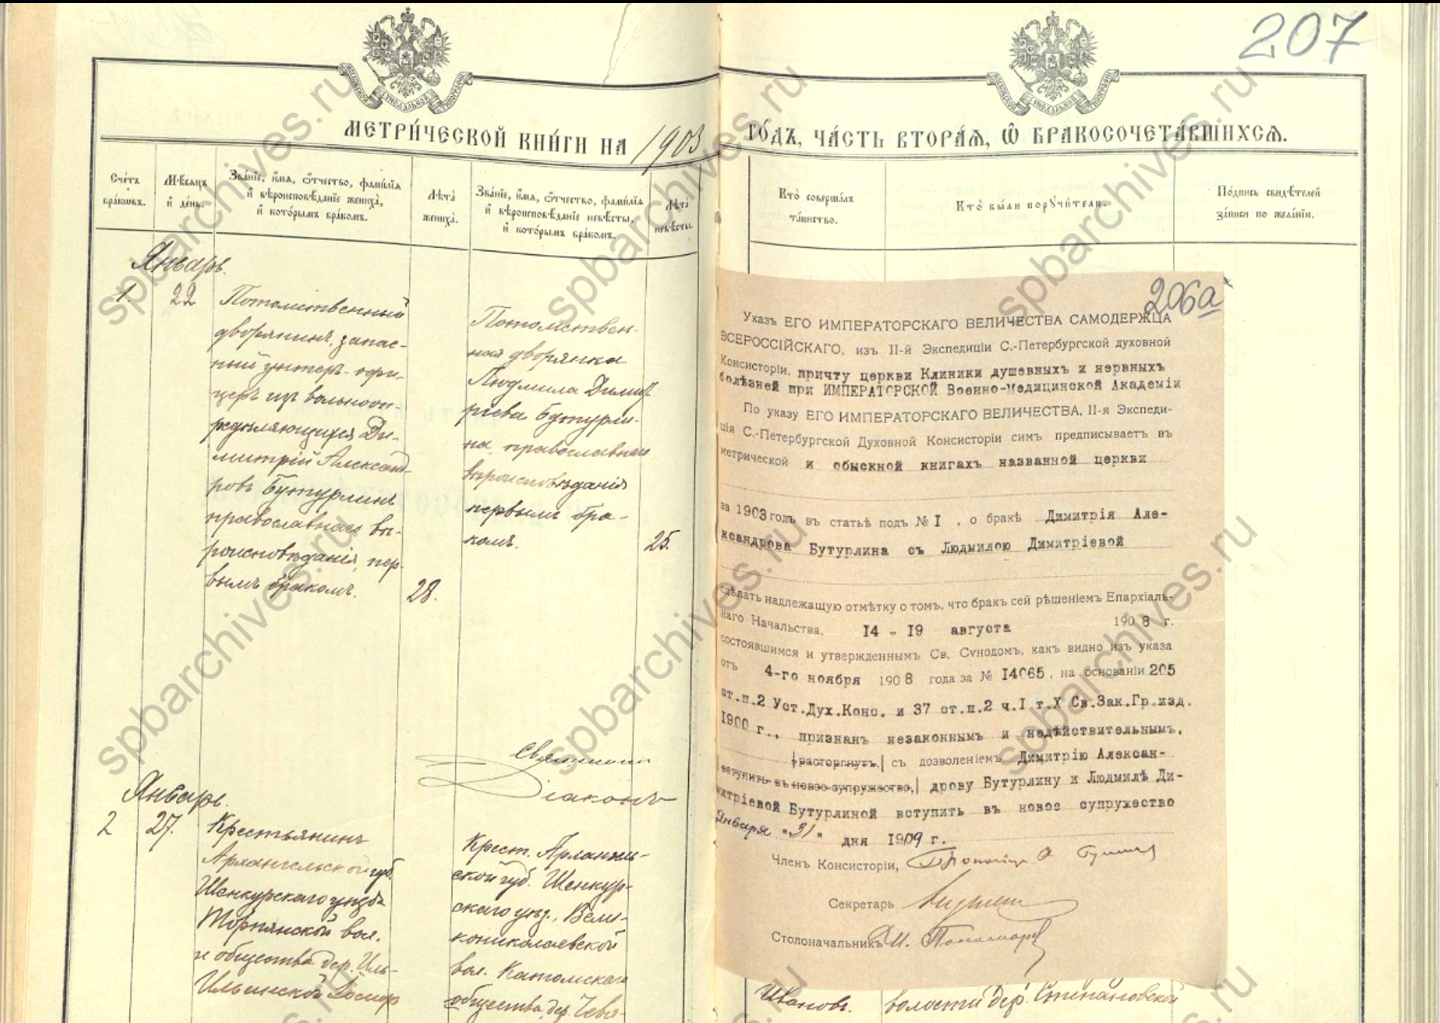 207
МЕТРИ́ЧЕСКОЙ КНИ́ГИ НА 1903 ГО́ДЪ, ЧА́СТЬ ВТОРА́Я, Ѽ БРАКОСОЧЕТА́ВШИХСЯ.
Сче́тъ бра́ковъ.
Мѣ́сяцъ и де́нь.
Зва́нїе, и́мя, ѻ́тчество, фамі́лїя
и вѣроисповѣ́данїе жениха̀,
и кото́рымъ бра́комъ.
Лѣ́та жениха̀.
Зва́нїе, и́мя, ѻ́тчество, фамі́лїя
и вѣроисповѣ́данїе невѣ́сты,
и кото́рымъ бра́комъ.
Лѣ́та невѣ́сты.
Кто̀ соверша́лъ
та́инство.
Кто̀ бы́ли поручи́тели.
По́дпись свидѣ́телей
за́писи по жела́нїю.
Январь.
1 22
Потомственный
дворянинъ, запас-
ный унтеръ-офи-
церъ изъ вольноопр-
редѣляющихся Ди-
митрій Александ-
ровъ Бутурлинъ
православнаго вѣ-
роисповѣданія, пер-
вымъ бракомъ.
28.
Потомствен-
ная дворянка
Людмила Димит-
ріева Бутурли-
на, православнаго
вѣроисповѣданія
первымъ бра-
комъ.
25.
Діаконъ
Январь.
2 27.
Крестьянинъ
Архангельской губ.
Шенкурскаго уѣзда
вол.
и общества дер. Иль-
Ильинской
Крест. Арханг-
ской губ. Шенкур-
скаго уѣз., Вели-
кониколаевской
вол.
общества, дер.
206а
Указъ ЕГО ИМПЕРАТОРСКАГО ВЕЛИЧЕСТВА САМОДЕРЖЦА
ВСЕРОССІЙСКАГО, изъ II-й Экспедиціи С.-Петербургской духовной
Консисторіи, причту церкви Клиники душевныхъ и нервныхъ
болѣзней при ИМПЕРАТОРСКОЙ Военно-Медицинской Академіи
По указу ЕГО ИМПЕРАТОРСКАГО ВЕЛИЧЕСТВА, II-я Экспеди-
ція С.-Петербургской Духовной Консисторіи симъ предписываетъ въ
метрической и обыскной книгахъ названной церкви
за 1903 годъ въ статьѣ подъ № I, о бракѣ Димитрія Але-
ксандрова Бутурлина съ Людмилою Димитріевой
сдѣлать надлежащую отмѣтку о томъ, что бракъ сей рѣшеніемъ Епархіаль-
наго Начальства, 14 - 19 августа 1908 г.
состоявшимся и утвержденнымъ Св. Сѵнодомъ, какъ видно изъ указа
отъ 4-го ноября 1908 года за № 14065, на основаніи 205
ст.п.2 Уст.Дух.Конс. и 37 ст.п.2 ч.I т.X Св.Зак.Гр.изд.
1900 г., признанъ незаконнымъ и недѣйствительнымъ,
расторгнутъ, съ дозволеніемъ Димитрію Алексан-
вступить въ новое супружество, дрову Бутурлину и Людмилѣ Ди-
митріевой Бутурлиной вступить въ новое супружество
Января "31" дня 1909 г.
Членъ Консисторіи,
Секретарь
Столоначальникъ
Ивановъ.
волости дер. Степановской
spbarchives.ru
spbarchives.ru
spbarchives.ru
spbarchives.ru
spbarchives.ru
spbarchives.ru